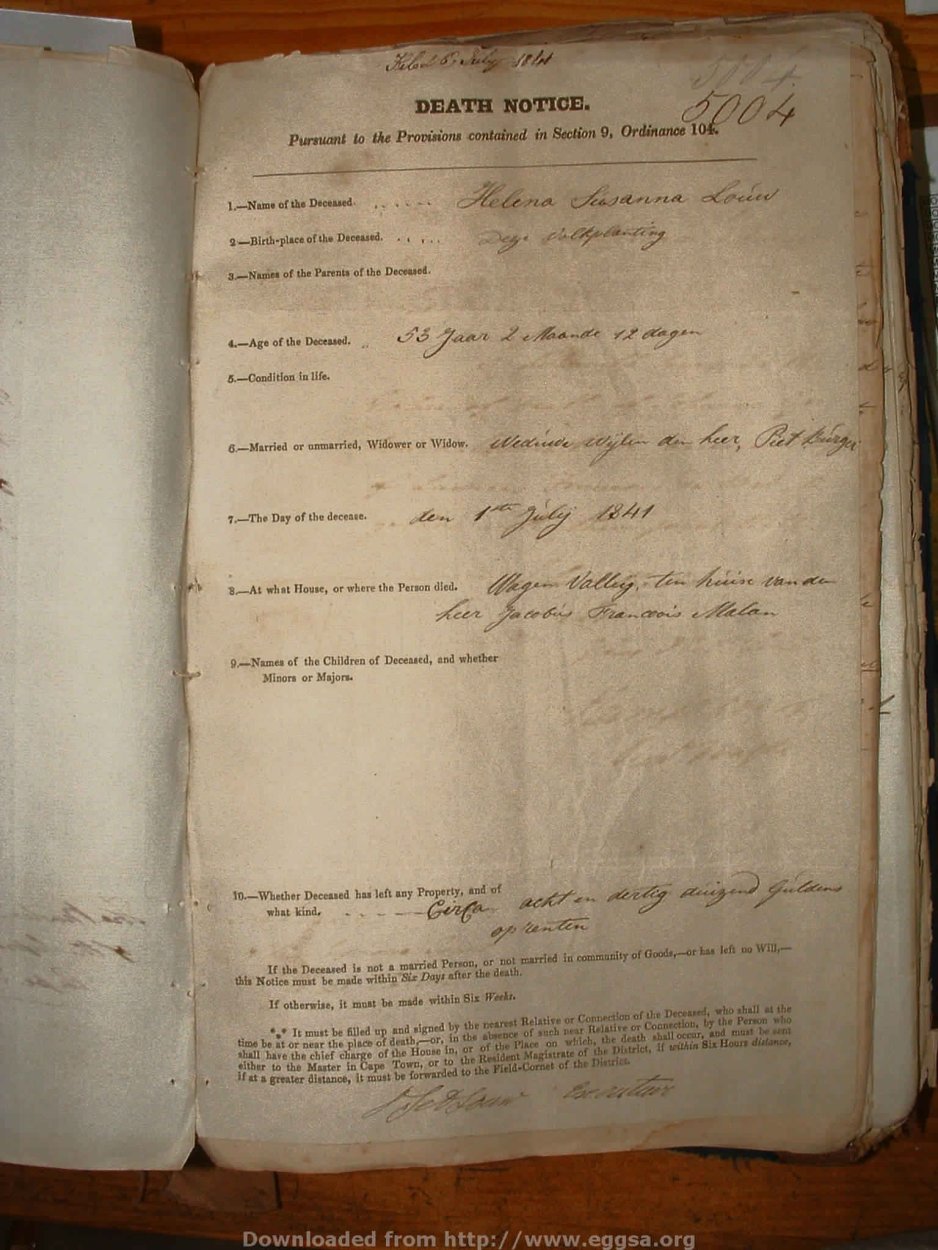 Filed 6 July 1841
5004
5004
DEATH NOTICE.
Pursuant to the Provisions contained in Section 9, Ordinance 104.
1.—Name of the Deceased. Helena Susanna Louw
2—Birth-place of the Deceased. Deze Volkplanting
3.—Names of the Parents of the Deceased.
4.—Age of the Deceased. 53 Jaar 2 Maande 12 dagen
5.—Condition in life.
6.—Married or unmarried, Widower or Widow. Weduwe wylen den heer, Piet Burger
7.—The Day of the decease. den 1ste Julij 1841
8.—At what House, or where the Person died. Wagen Valley, ten huise van den
heer Jacobus Francois Malan
9.—Names of the Children of Deceased, and whether
Minors or Majors.
10.—Whether Deceased has left any Property, and of
what kind. Circa acht en dertig duizend Guldens
op renten
If the Deceased is not a married Person, or not married in community of Goods,—or has left no Will,—
this Notice must be made within Six Days after the death.
If otherwise, it must be made within Six Weeks.
*** It must be filled up and signed by the nearest Relative or Connection of the Deceased, who shall at the
time be at or near the place of death,—or, in the absence of such near Relative or Connection, by the Person who
shall have the chief charge of the House in, or of the Place on which, the death shall occur, and must be sent
either to the Master in Cape Town, or to the Resident Magistrate of the District, if within Six Hours distance,
if at a greater distance, it must be forwarded to the Field-Cornet of the District.
Louw Executeur
Downloaded from http://www.eggsa.org